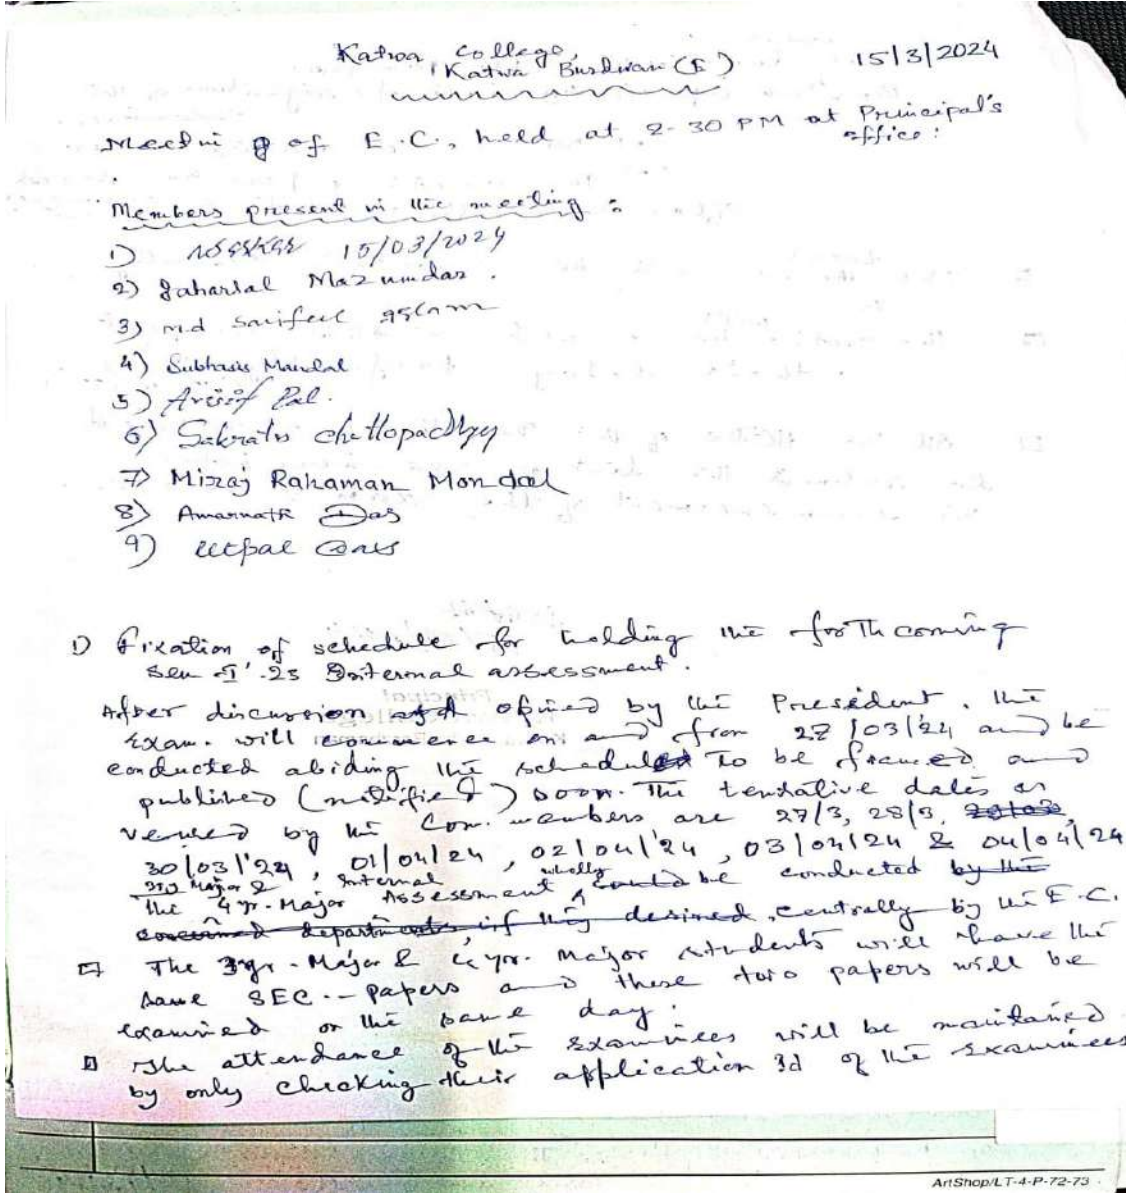 Katwa College,
Katwa Burdwan (E)
15/3/2024
Meeting of E.C., held at 2-30 PM at Principal's
office:
Members present in the meeting :
1) 15/03/2024
2) Jaharlal Mazumdar.
3) Md Sariful
4) Subhasis Mandal
5) Pal.
6) Chattopadhyay
7) Miraj Rahaman Mondal
8) Amarnath Das
9) Utpal
1) Fixation of schedule for holding the forthcoming
Sem -I' .23 Internal assessment.
After discussion opined by the President, the
Exam. will commence on and from 27/03/'24 and be
conducted abiding the schedule to be framed and
published (notified) soon. The tentative dates as
by the Com. members are 27/3, 28/3,
30/03/'24, 01/04/24, 02/04/'24, 03/04/24 & 04/04/24
3 yr Major & Internal wholly
the 4 yr. Major Assessment, could be conducted by the
concerned departments, if they desired, centrally by the E.C.
The 3 yr. Major & 4 yr. Major students will have the
same SEC - papers and these two papers will be
examined on the same day.
The attendance of the examinees will be maintained
by only checking their application Id of the examinees
ArtShop/LT-4-P-72-73